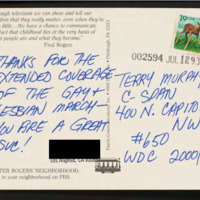 ough television we can show and tell our
ildren that they really matter, even when they're
little... We have a chance to communicate
fact that childhood lies at the very basis of
people are and what they become."
Fred Rogers
THANKS FOR THE
EXTENDED COVERAGE
OF THE GAY &
LESBIAN MARCH -
YOU ARE A GREAT
SVC!
Los Angeles, CA
STER ROGERS' NEIGHBORHOOD
in your neighborhood on PBS.
Pittsburgh, PA 15213
19
002594 JUL 12 93
TERRY MURPHY
C SPAN
400 N. CAPITO
NW
#650
WDC 20001